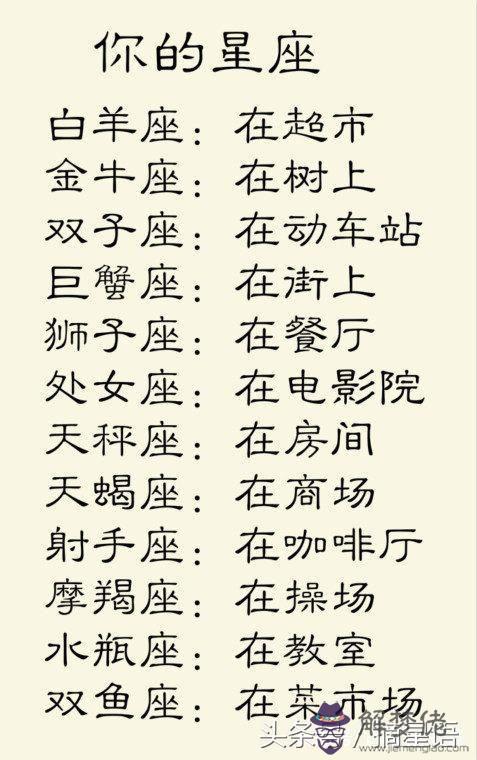 你的星座
白羊座：在超市
金牛座：在树上
双子座：在动车站
巨蟹座：在街上
狮子座：在餐厅
处女座：在电影院
天秤座：在房间
天蝎座：在商场
射手座：在咖啡厅
摩羯座：在操场
水瓶座：在教室
双鱼座：在菜市场
解梦佬
www.jiemenglao.com